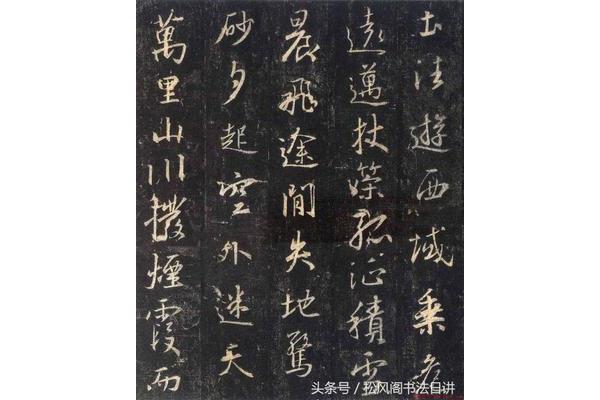 土往遊西域乘危
遠邁杖策孤征積雪
晨飛途間失地驚
砂夕起空外迷天
萬里山川撥煙霞而
头条号 / 松风阁书法日讲